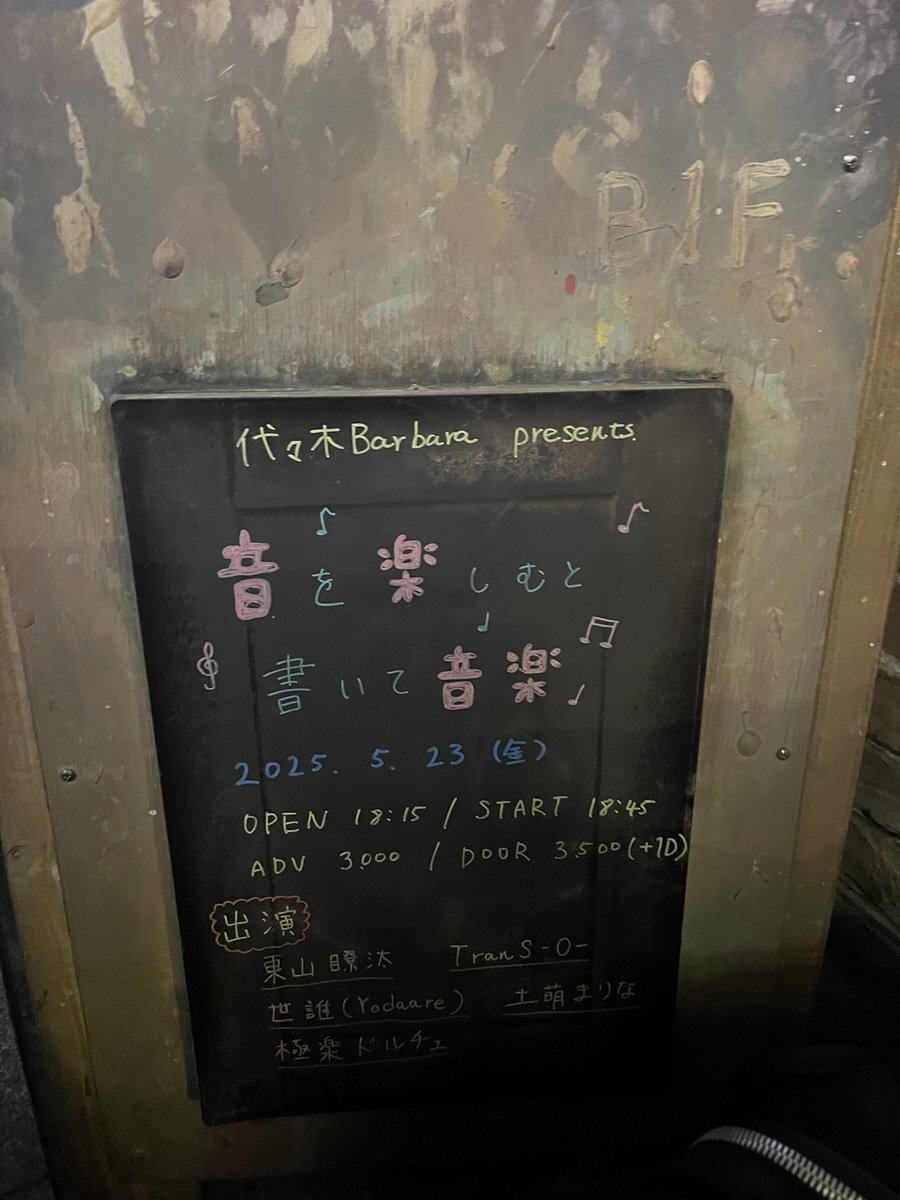 B1F
代々木Barbara presents.
音を楽しむと
書いて音楽
2025. 5. 23 (金)
OPEN 18:15 / START 18:45
ADV 3,000 / DOOR 3,500 (+1D)
出演
東山瞭汰 TranS-O-
世誰(Yodaare) 土萌まりな
極楽ドルチェ